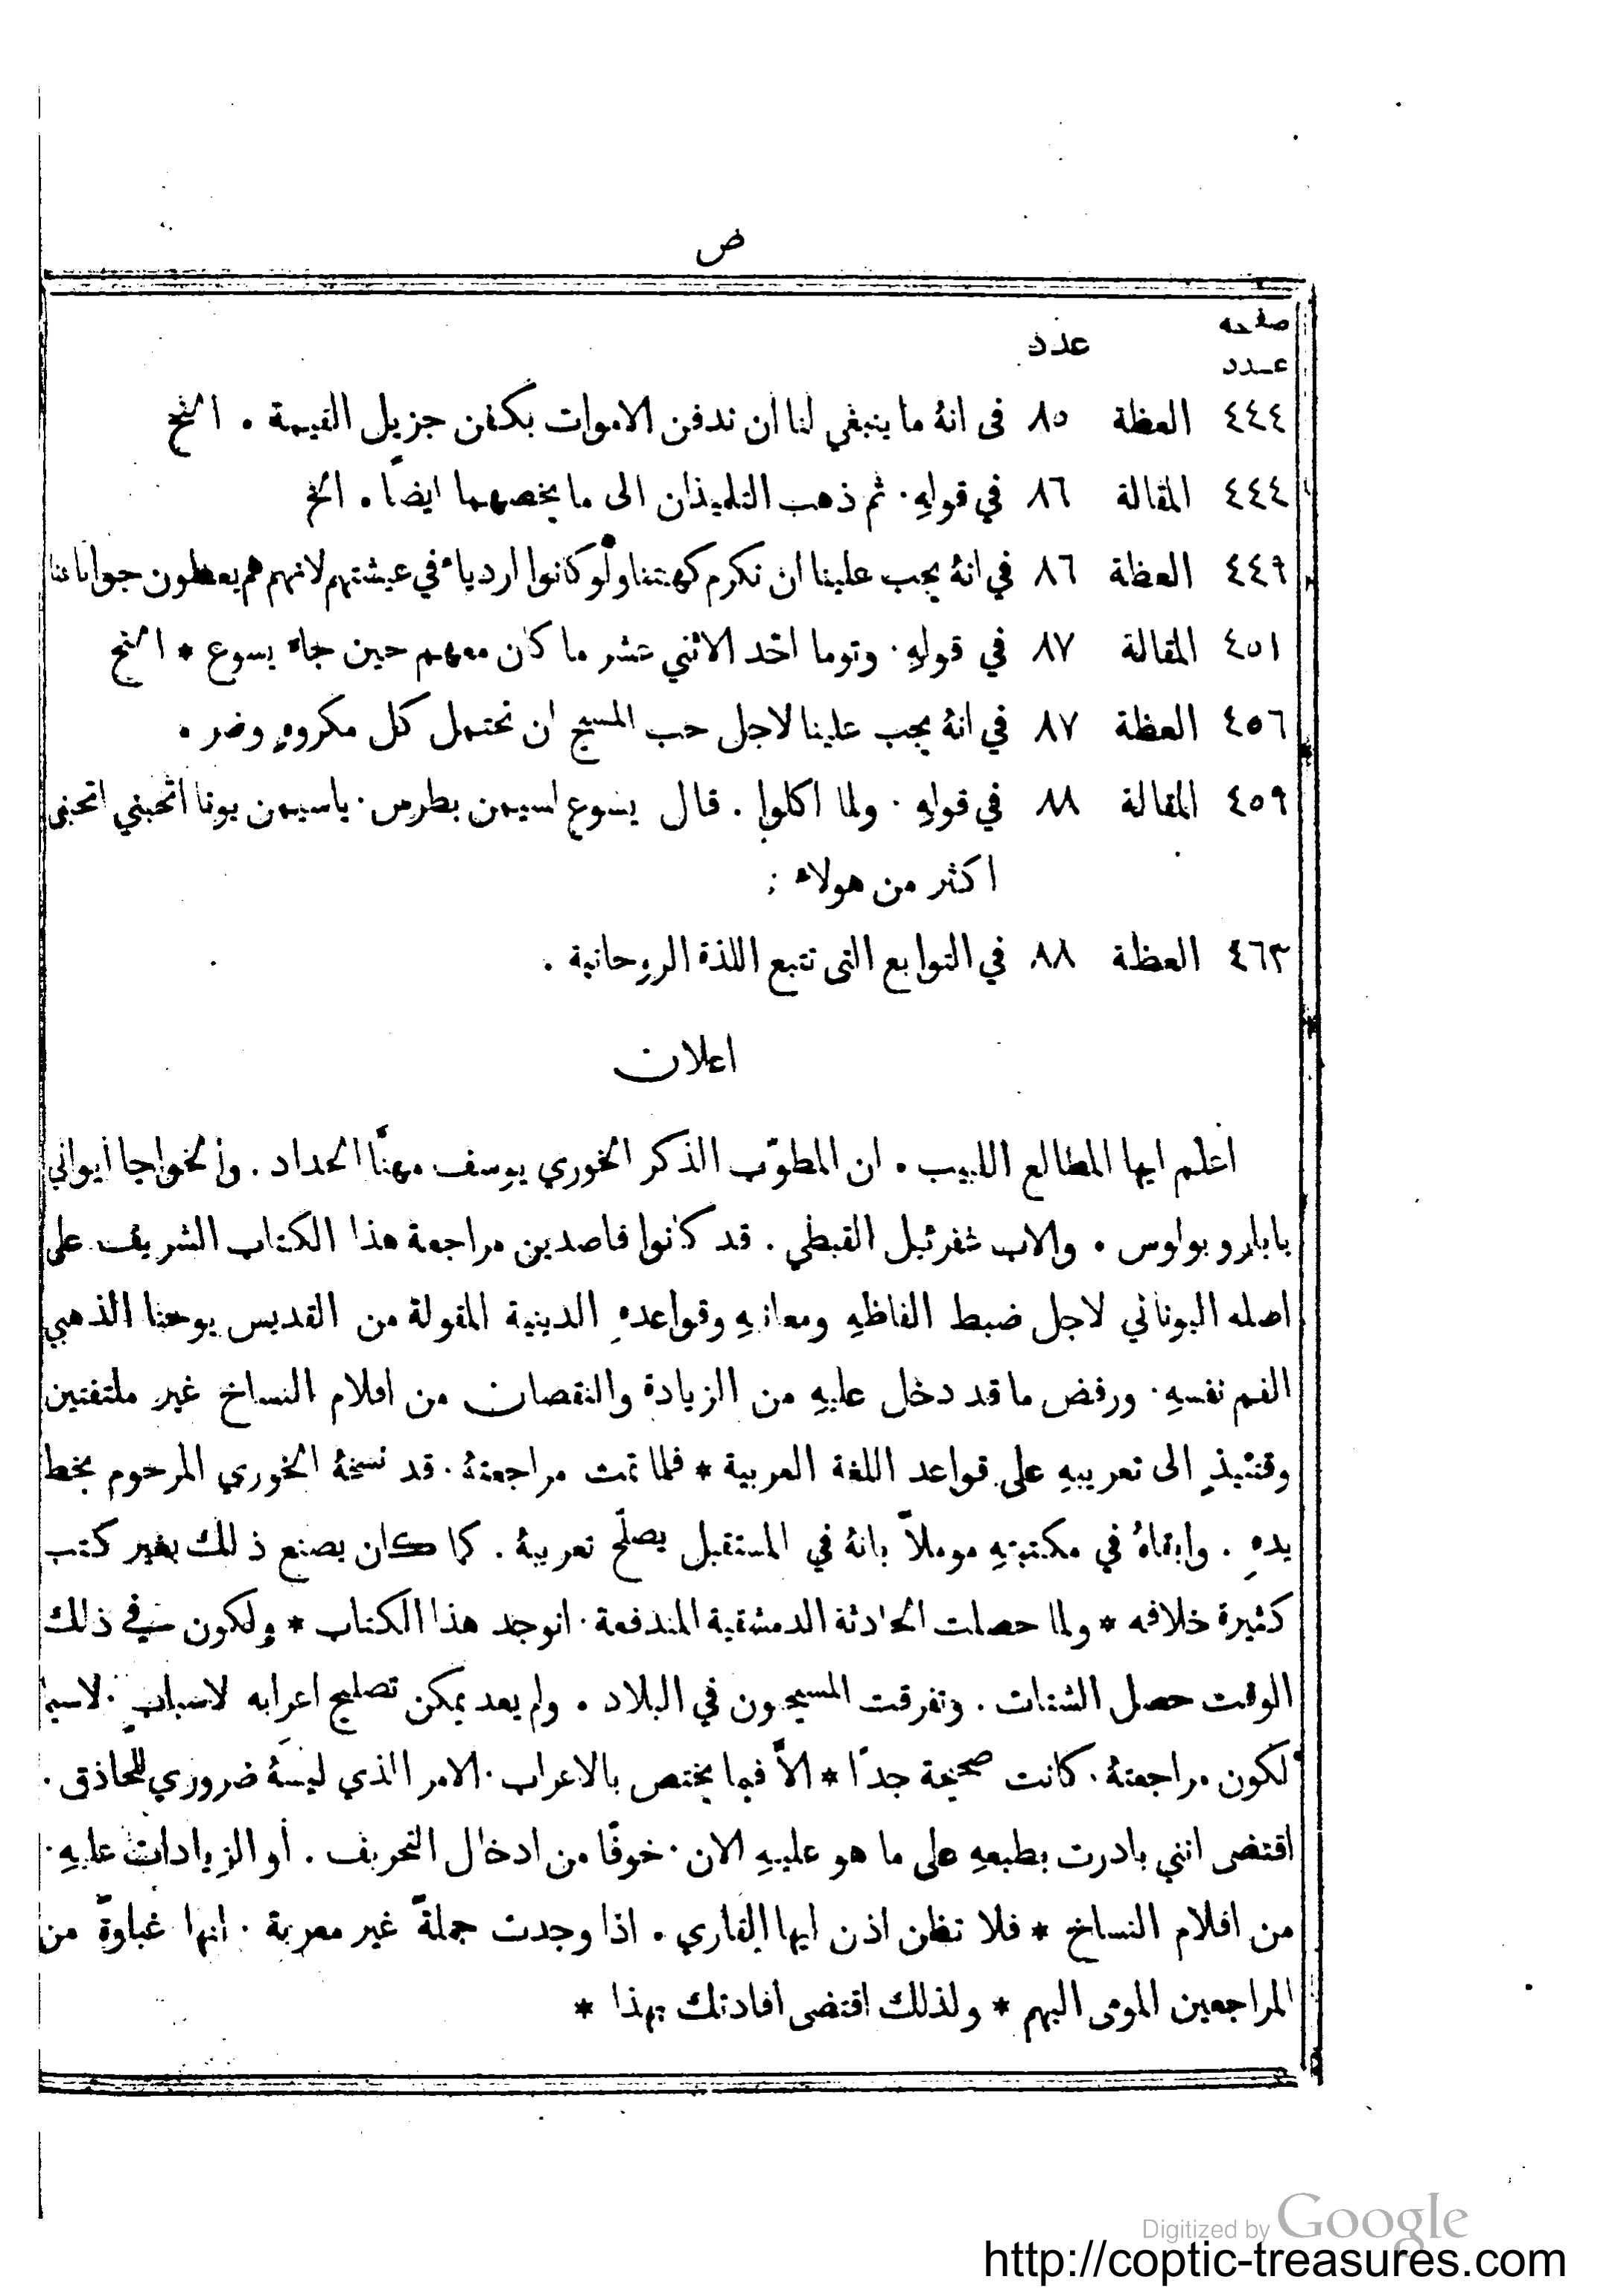 ض
صفحه
عدد
عدد
٤٤٤ العظة ٨٥ في انهُ ما ينبغي لنا ان ندفن الاموات بكفن جزيل القيمة . الخ
٤٤٤ المقالة ٨٦ في قولهِ . ثم ذهب التلميذان الى ما يخصهما ايضًا . الخ
٤٤٩ العظة ٨٦ في انهُ يجب علينا ان نكرم كهنتنا ولو كانوا اردياء في عيشتهم لانهم هم يعطون جوابا عنا
٤٥١ المقالة ٨٧ في قولهِ . وتوما احد الاثني عشر ما كان معهم حين جاء يسوع * الخ
٤٥٦ العظة ٨٧ في انهُ يجب علينا لاجل حب المسيح ان نحتمل كل مكروهٍ وضر .
٤٥٩ المقالة ٨٨ في قولهِ . ولما اكلوا . قال يسوع لسيمن بطرس . ياسيمن يونا اتحبني اتحبنى
اكثر من هولاء :
٤٦٣ العظة ٨٨ في التوابع التى تتبع اللذة الروحانية .
اعلان
اعلم ايها المطالع اللبيب . ان المطوّب الذكر الخوري يوسف مهنَّا الحداد . والخواجا ايواني
بابادوبولوس . والاب القبطي . قد كانوا قاصدين مراجعة هذا الكتاب الشريف على
اصله اليوناني لاجل ضبط الفاظهِ ومعانيهِ وقواعدهِ الدينية المقولة من القديس يوحنا الذهبي
الفم نفسهِ . ورفض ما قد دخل عليهِ من الزيادة والنقصان من اقلام النساخ غير ملتفتين
وقتئيذٍ الى تعريبهِ على قواعد اللغة العربية * فلما تمت مراجعتهُ . قد نسخهُ الخوري المرحوم بخط
يدهِ . وابقاهُ في مكتبتهِ موملاً بانهُ في المستقبل يصلّح تعريبهُ . كما كان يصنع ذلك بغير كتب
كثيرة خلافه * ولما حصلت الحادثة الدمشقية المندفعة . انوجد هذا الكتاب * ولكون في ذلك
الوقت حصل الشتات . وتفرقت المسيحيون في البلاد . ولم يعد يمكن تصليح اعرابه لاسبابٍ . لاسيما
لكون مراجعتهُ . كانت صحيحة جدًا * الاّ فيما يختص بالاعراب . الامر الذي ليسهُ ضروري للحاذق .
اقتضى انني بادرت بطبعهِ على ما هو عليهِ الان . خوفًا من ادخال التحريف . أو الزيادات عليهِ .
من اقلام النساخ * فلا تظن اذن ايها القاري . اذا وجدت جملةً غير معربة . انها غباوةً من
المراجعين المومى اليهم * ولذلك اقتضى افادتك بهذا *
Digitized by Google
http://coptic-treasures.com